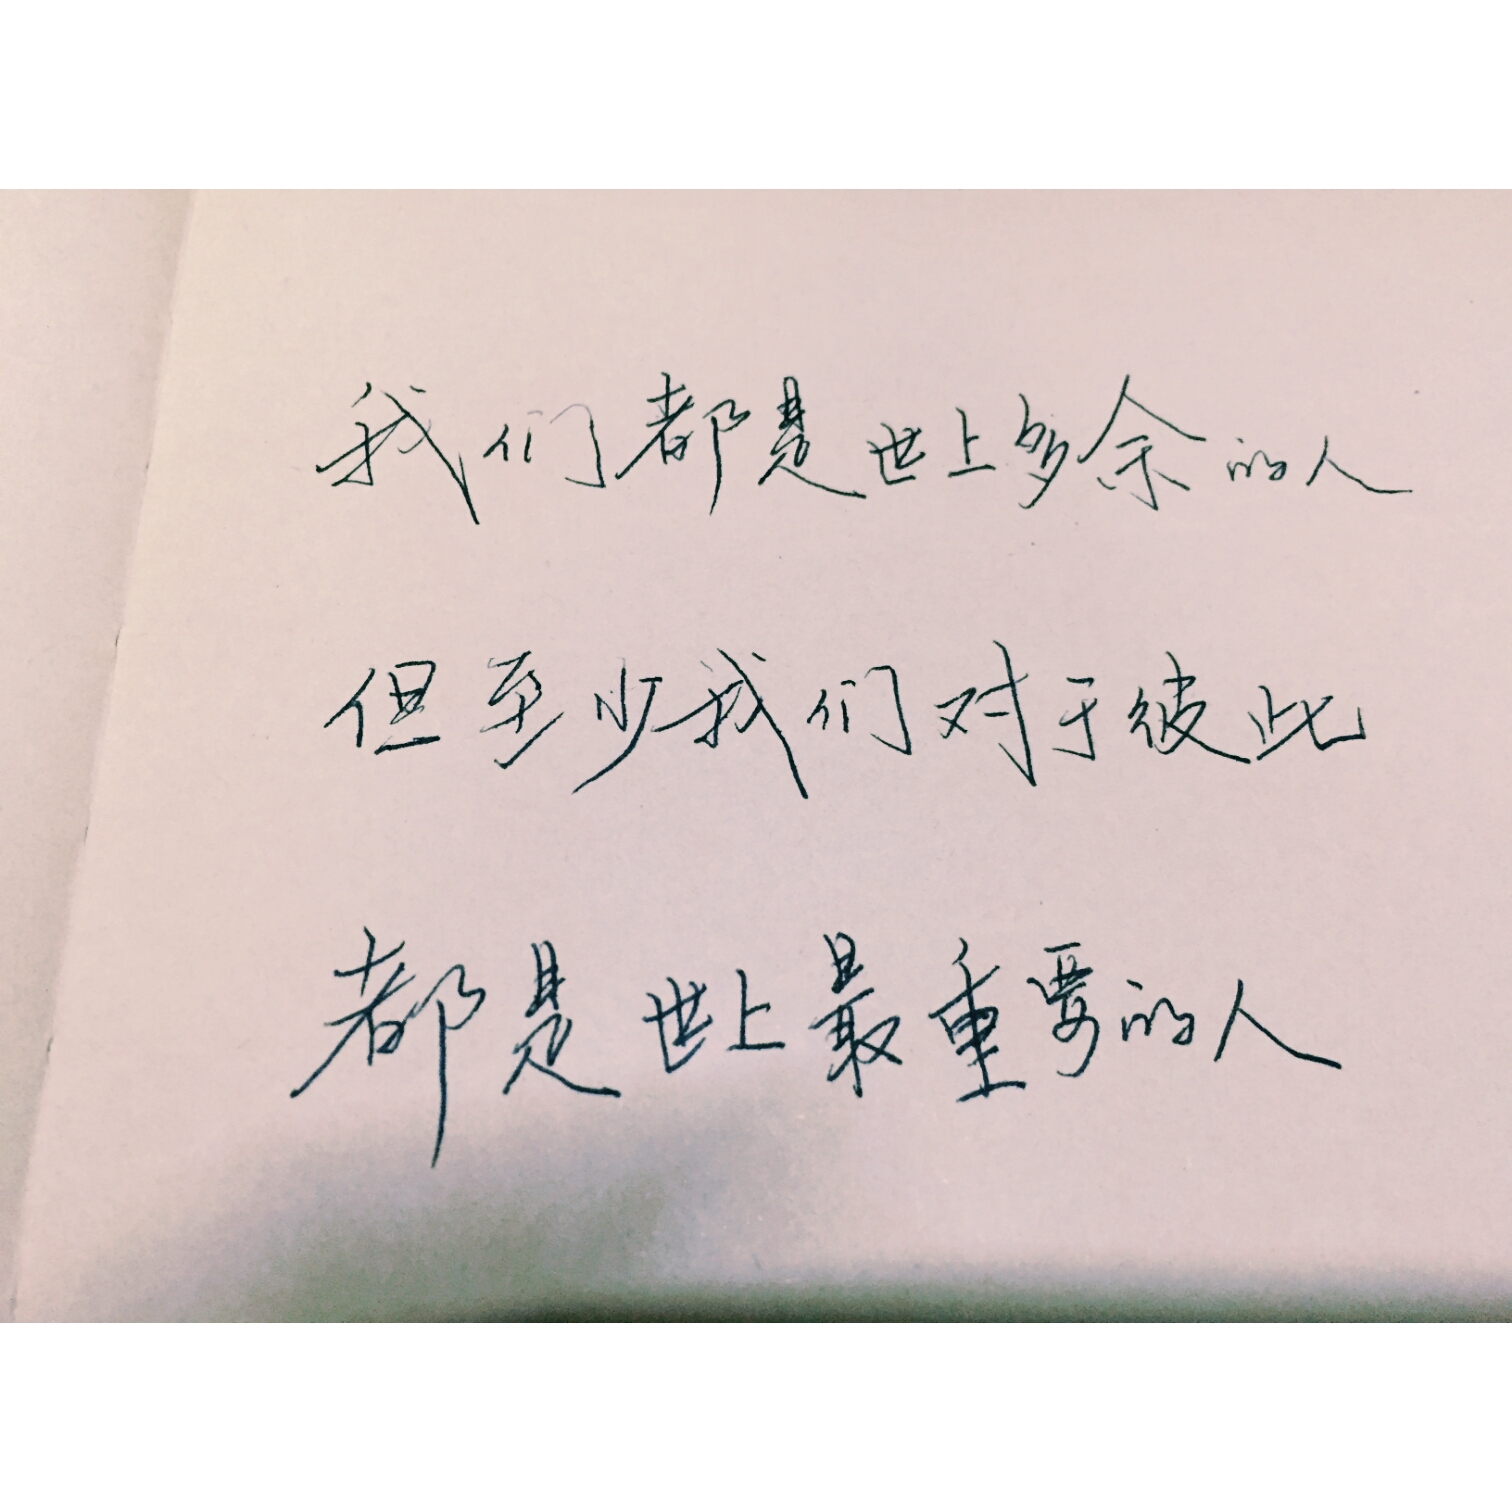 我们都是世上多余的人
但至少我们对于彼此
都是世上最重要的人